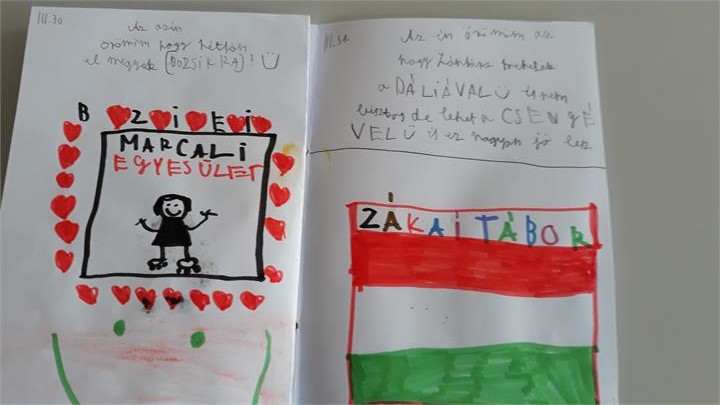 III.30
Az azin
örömim hogy hétfőn
el megyek (BOZSIKRA)! Ü
B ZIEI
MARCALI
EGYESÜLET
III.31.
Az én örömim az
hogy
a DÁLIÁVAL Ü és nem
biztos de lehet a CSENGÉ
VEL Ü is ez nagyon jó lesz
ZÁKAI TÁBOR